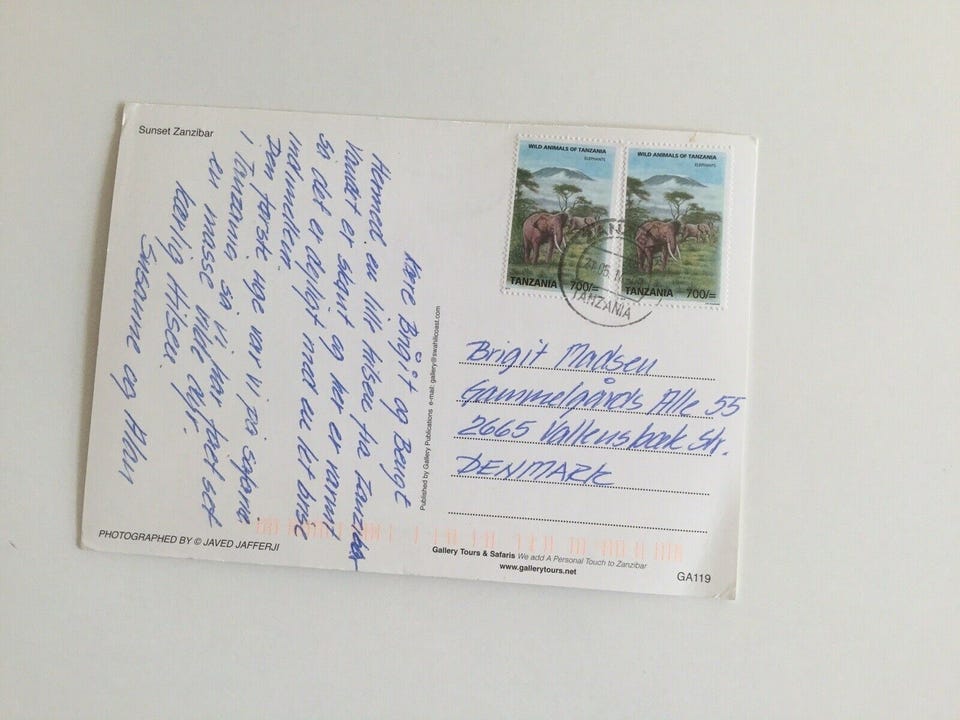 Sunset Zanzibar
Kære Brigit og Bengt
Hermed en lille hilsen fra Zanzibar
Vandet er skønt og her er varmt
så det er dejligt med en let brise
indimellem.
Den første uge var vi på safarie
i Tanzania så vi har fået set
en masse vilde dyr.
Kærlig Hilsen
Susanne og Allan
PHOTOGRAPHED BY © JAVED JAFFERJI
Published by Gallery Publications e-mail: gallery@swahilicoast.com
WILD ANIMALS OF TANZANIA
ELEPHANTS
TANZANIA 700/=
WILD ANIMALS OF TANZANIA
ELEPHANTS
TANZANIA 700/=
TANZANIA
Brigit Madsen
Gammelgårds Alle 55
2665 Vallensbæk Str.
DENMARK
Gallery Tours & Safaris We add A Personal Touch to Zanzibar
www.gallerytours.net
GA119